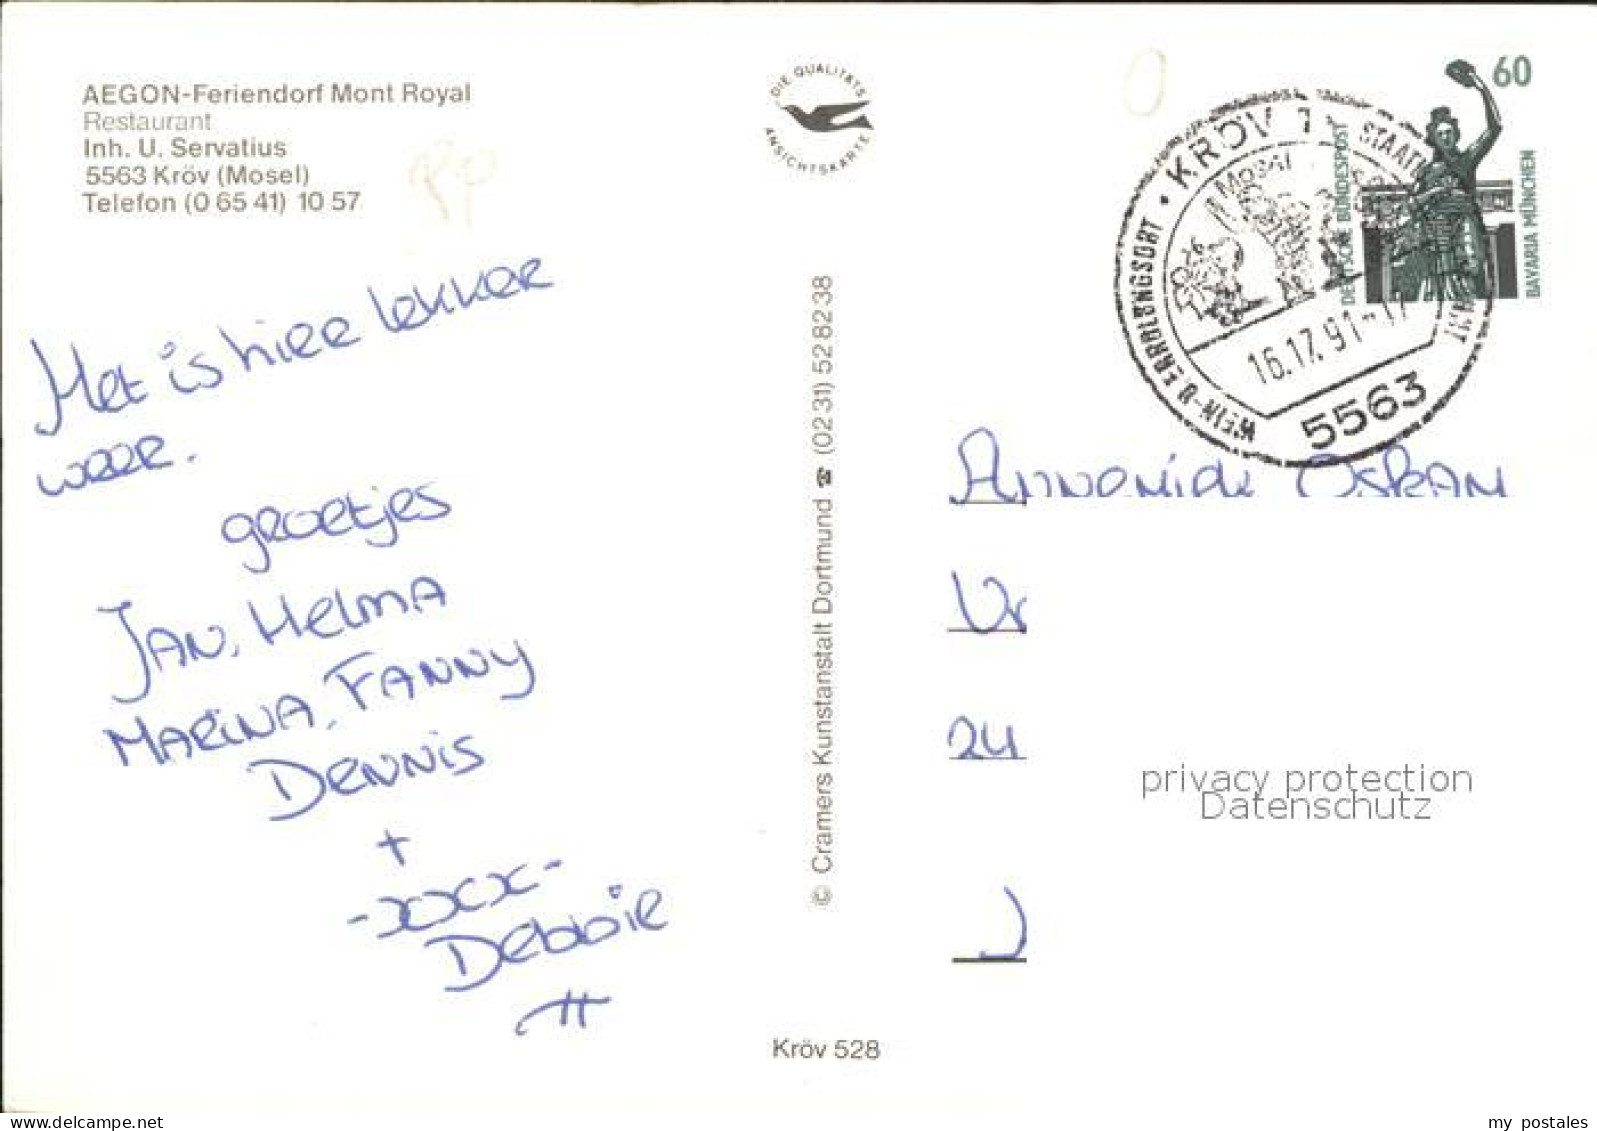 AEGON-Feriendorf Mont Royal
Restaurant
Inh. U. Servatius
5563 Kröv (Mosel)
Telefon (0 65 41) 10 57
Het is hier lekker
weer.
groetjes
Jan, Helma
Marina, Fanny
Dennis
+
-xxxx-
Debbie
DIE QUALITÄTS
ANSICHTSKARTE
© Cramers Kunstanstalt Dortmund ☎ (02 31) 52 82 38
Kröv 528
60
DEUTSCHE BUNDESPOST
BAVARIA MÜNCHEN
KRÖV
Mosel
WEIN- U ERHOLUNGSORT
5563
Oskam
24
privacy protection
Datenschutz
delcampe.net
my postales